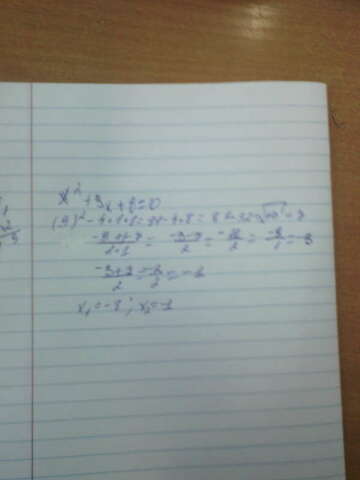 x² + 9x + 8 = 0
(9)² - 4·1·8 = 81 - 4·8 = 81 - 32 = √49 = 7
-9 ± 7 / 2·1 = -9-7 / 2 = -16 / 2 = -8 / 1 = -8
-9+7 / 2 = -2 / 2 = -1
x₁ = -8; x₂ = -1